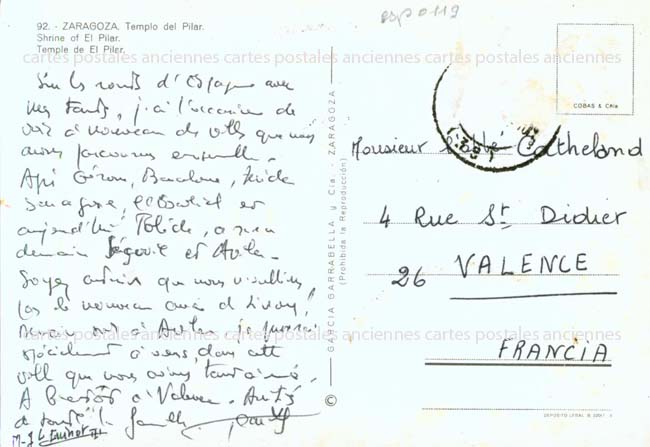 esp 0119
92. - ZARAGOZA. Templo del Pilar.
Shrine of El Pilar.
Temple de El Pilar.
cartes postales anciennes cartes postales anciennes cartes postales anciennes
Sur les routes d'Espagne avec
mes j'ai l'occasion de
voir à nouveau des villes que nous
avons parcourues ensemble.
Après Gérone, Barcelone,
Saragosse, l'Escorial et
aujourd'hui Tolède,
demain Ségovie et Avila.
Soyez que nous
pas le nouveau
Demain à Avila je penserai
spécialement à vous, dans cette
ville que nous avons tant aimée.
A bientôt à Valence. Amitiés
à toute la famille
GARCIA GARRABELLA y Cía. - ZARAGOZA
(Prohibida la Reproducción)
©
COBAS & Cñía
Monsieur l'abbé Catheland
4 Rue St Didier
26 VALENCE
FRANCIA
cartes postales anciennes cartes postales anciennes cartes postales anciennes
DEPOSITO LEGAL B.